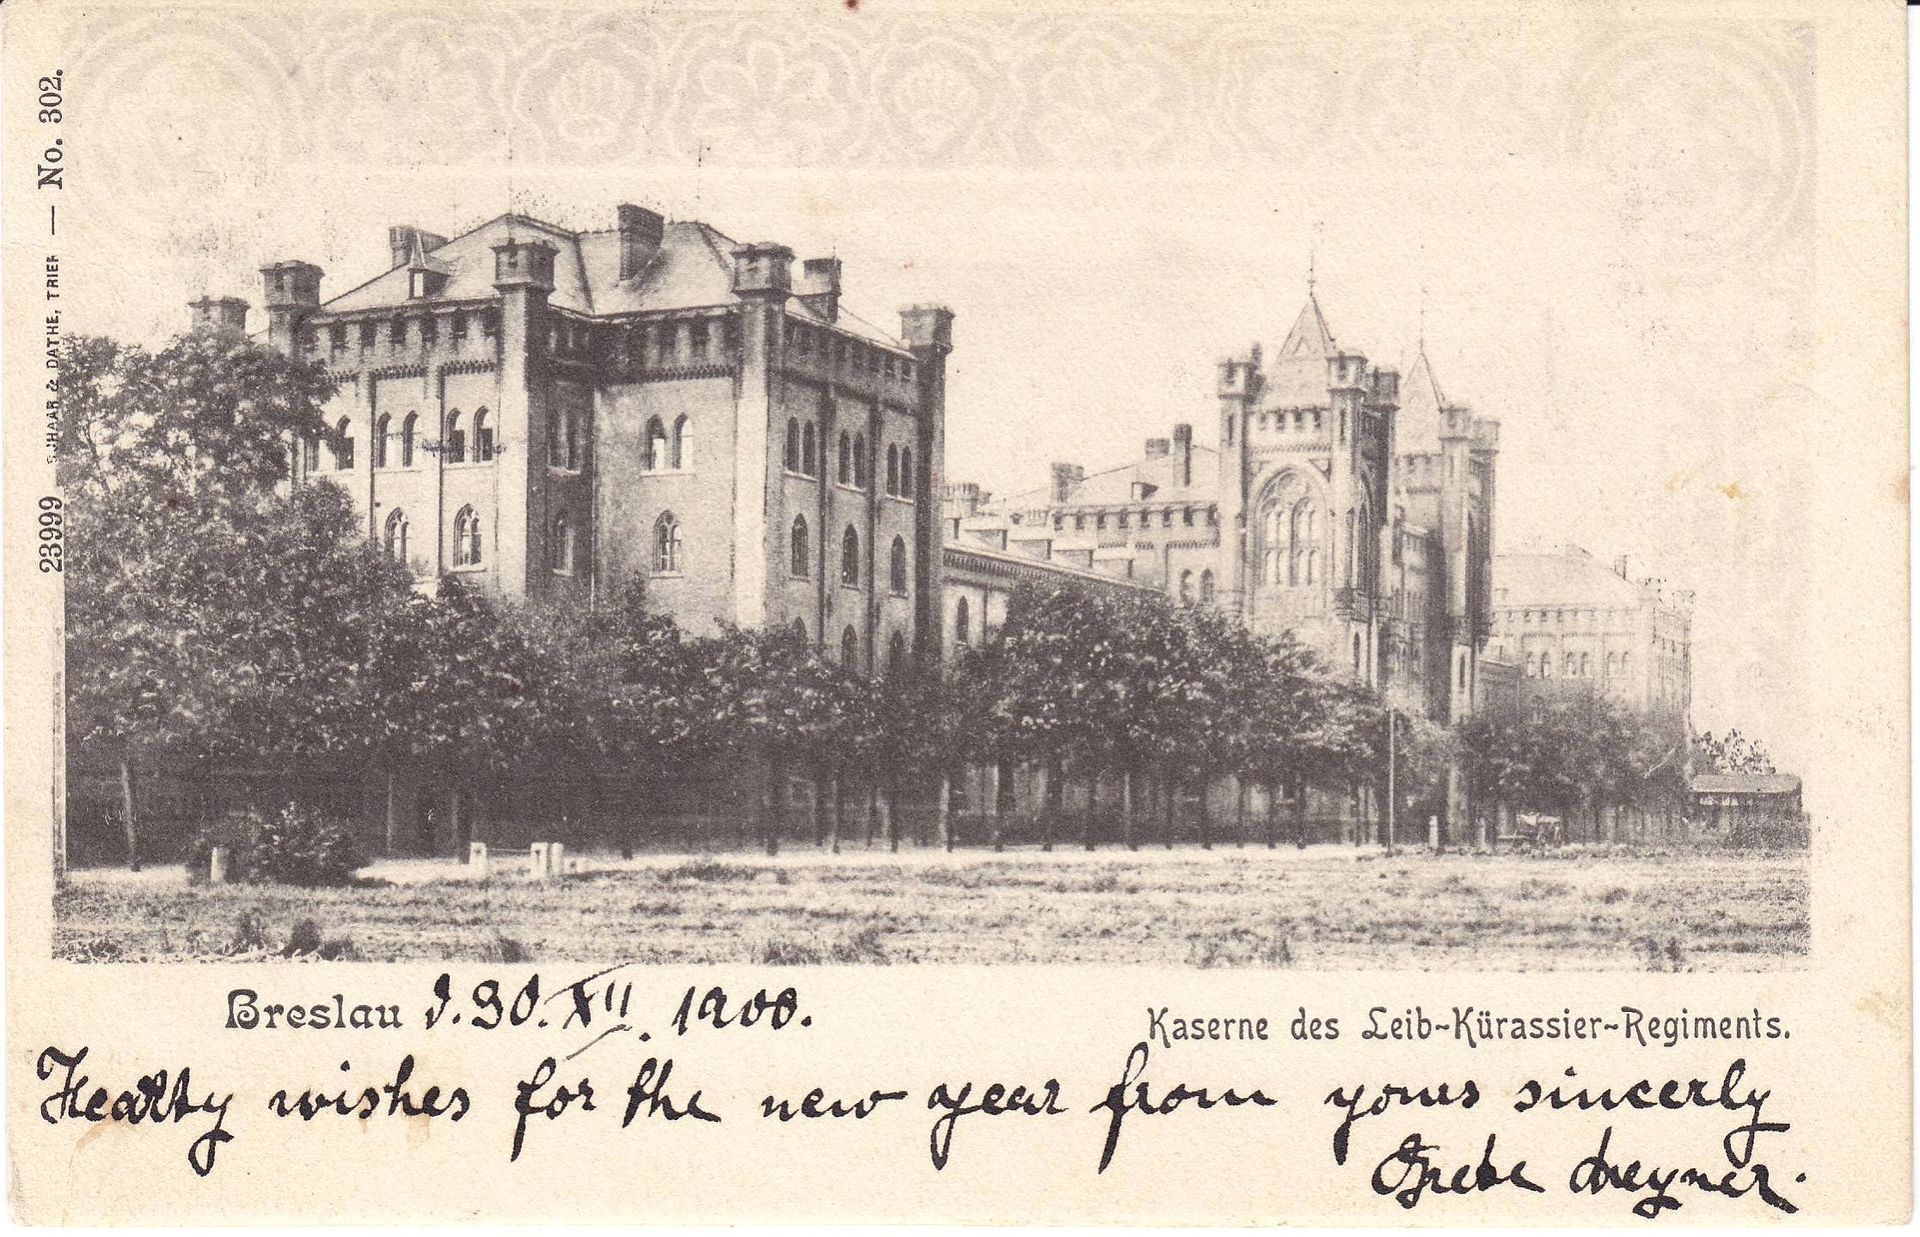 23999 SCHAAR & DATHE, TRIER — No. 302.
Breslau d. 30. XII. 1900.
Kaserne des Leib-Kürassier-Regiments.
Hearty wishes for the new year from yours sincerly
Grete